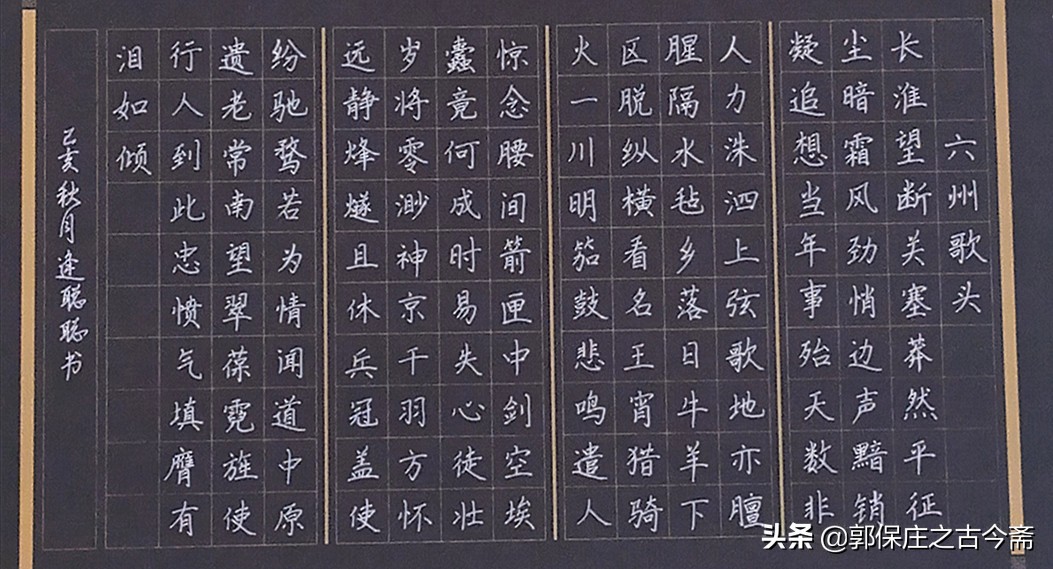 六州歌头
长淮望断关塞莽然平征
尘暗霜风劲悄边声黯销
凝追想当年事殆天数非
人力洙泗上弦歌地亦膻
腥隔水毡乡落日牛羊下
区脱纵横看名王宵猎骑
火一川明笳鼓悲鸣遣人
惊念腰间箭匣中剑空埃
蠹竟何成时易失心徒壮
岁将零渺神京干羽方怀
远静烽燧且休兵冠盖使
纷驰骛若为情闻道中原
遗老常南望翠葆霓旌使
行人到此忠愤气填膺有
泪如倾
己亥秋月逢聪聪书
头条 @郭保庄之古今斋